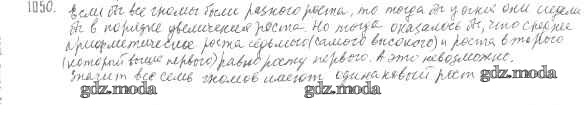 1050. Если бы все гномы были разного роста, то тогда бы у окна они сидели
бы в порядке увеличения роста. Но тогда оказалось бы, что среднее
арифметическое роста седьмого (самого высокого) и роста второго
(который выше первого) равно росту первого. А это невозможно.
Значит все семь гномов имеют одинаковый рост
gdz.moda gdz.moda gdz.moda